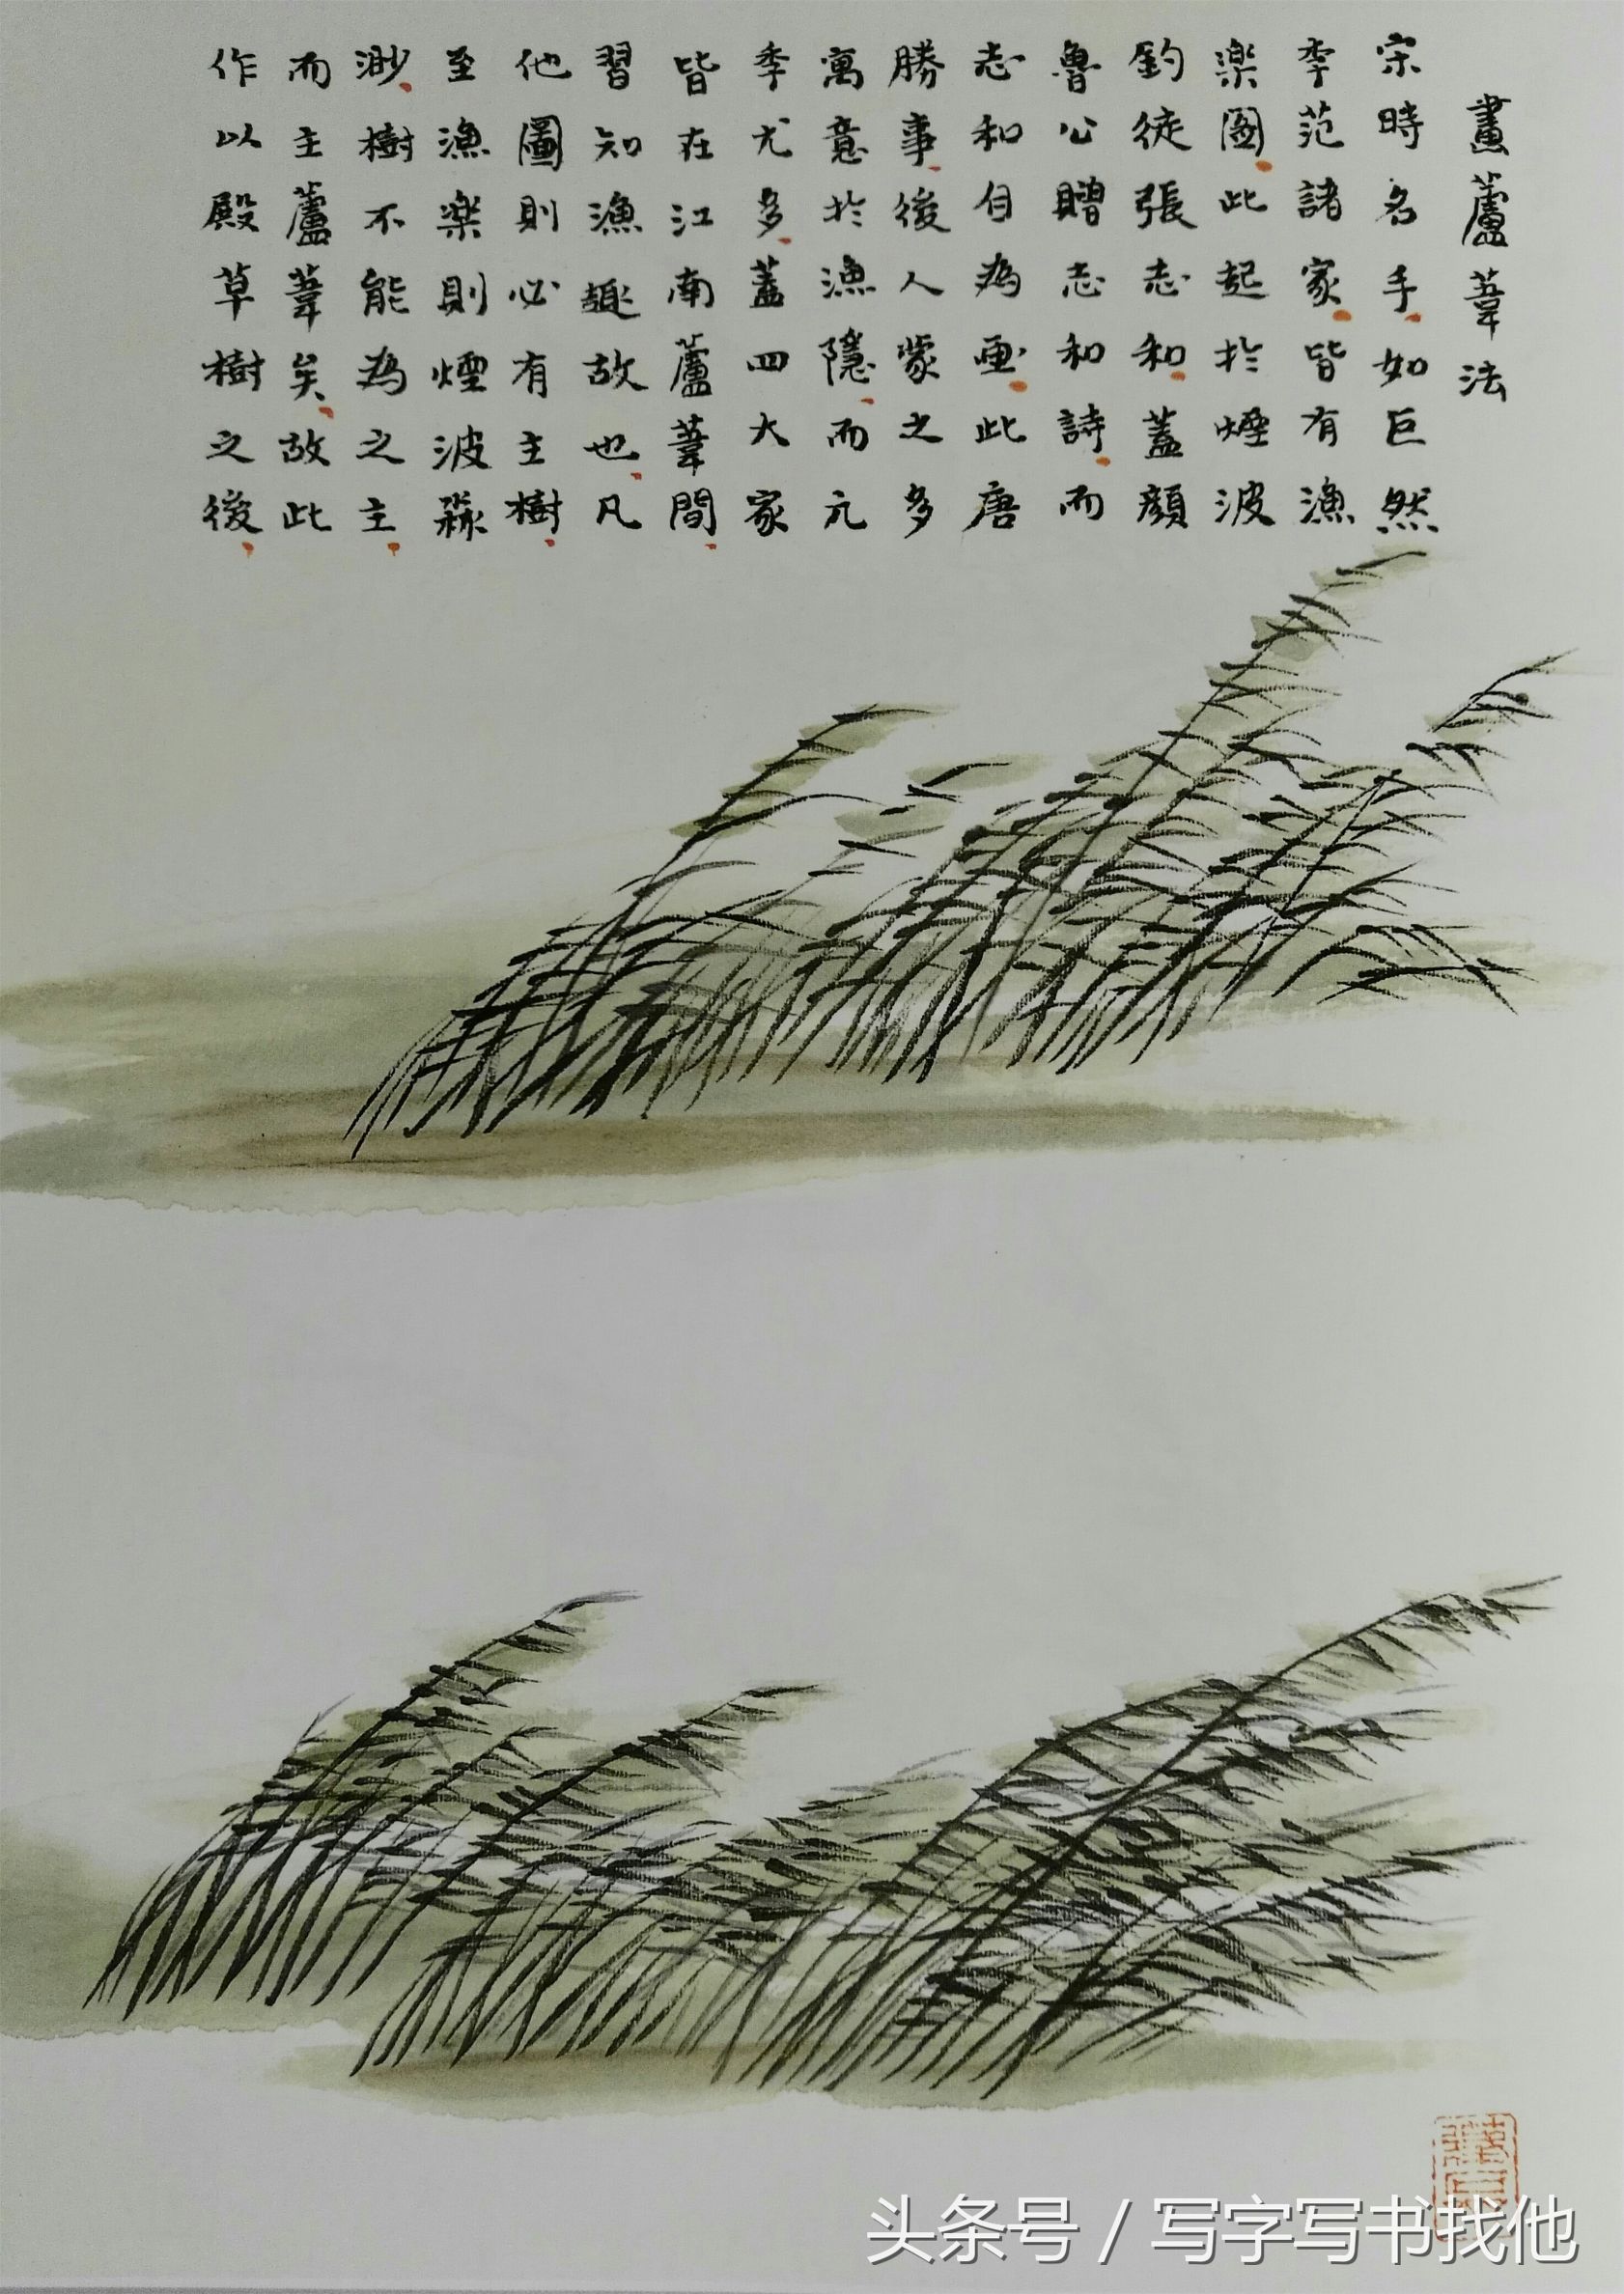 畫蘆葦法
宗時名手如巨然
李范諸家皆有漁
楽圖此起於煙波
釣徒張志和蓋顔
魯公贈志和詩而
志和自為画此唐
勝事後人蒙之多
寓意於漁隱而元
季尤多蓋四大家
皆在江南蘆葦間
習知漁趣故也凡
他圖則必有主樹
至漁楽則煙波淼
渺樹不能為之主
而主蘆葦矣故此
作以殿草樹之後
头条号 / 写字写书找他